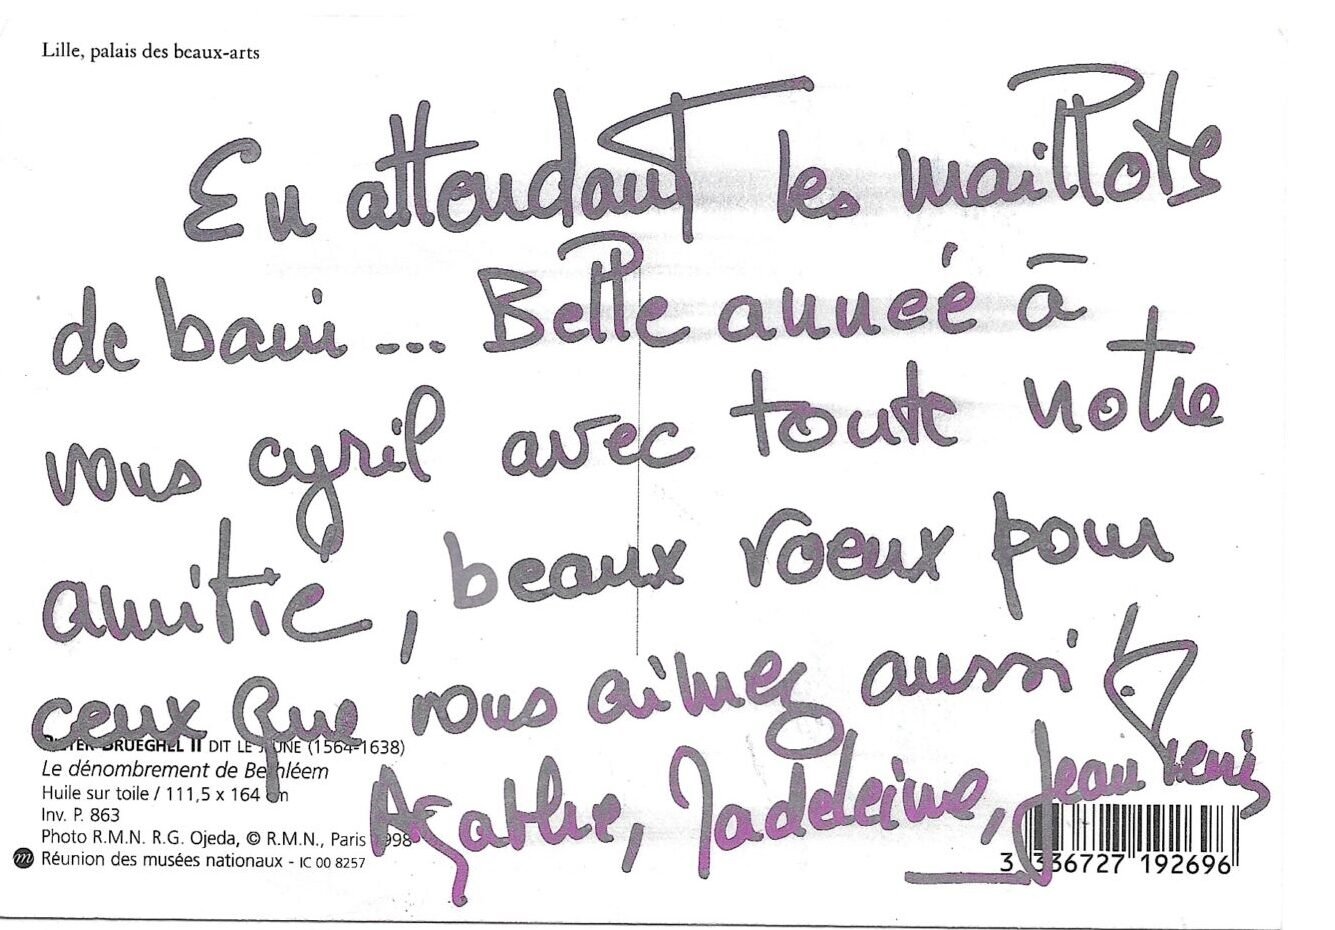 Lille, palais des beaux-arts
En attendant les maillots
de bain ... Belle année à
vous cyril avec toute notre
amitié, beaux voeux pour
ceux que vous aimez aussi !
Agathe, Madeleine, Jean
PIETER BRUEGHEL II DIT LE JEUNE (1564-1638)
Le dénombrement de Bethléem
Huile sur toile / 111,5 x 164 cm
Inv. P. 863
Photo R.M.N. R.G. Ojeda, © R.M.N., Paris 1998
m Réunion des musées nationaux - IC 00 8257
3 336727 192696